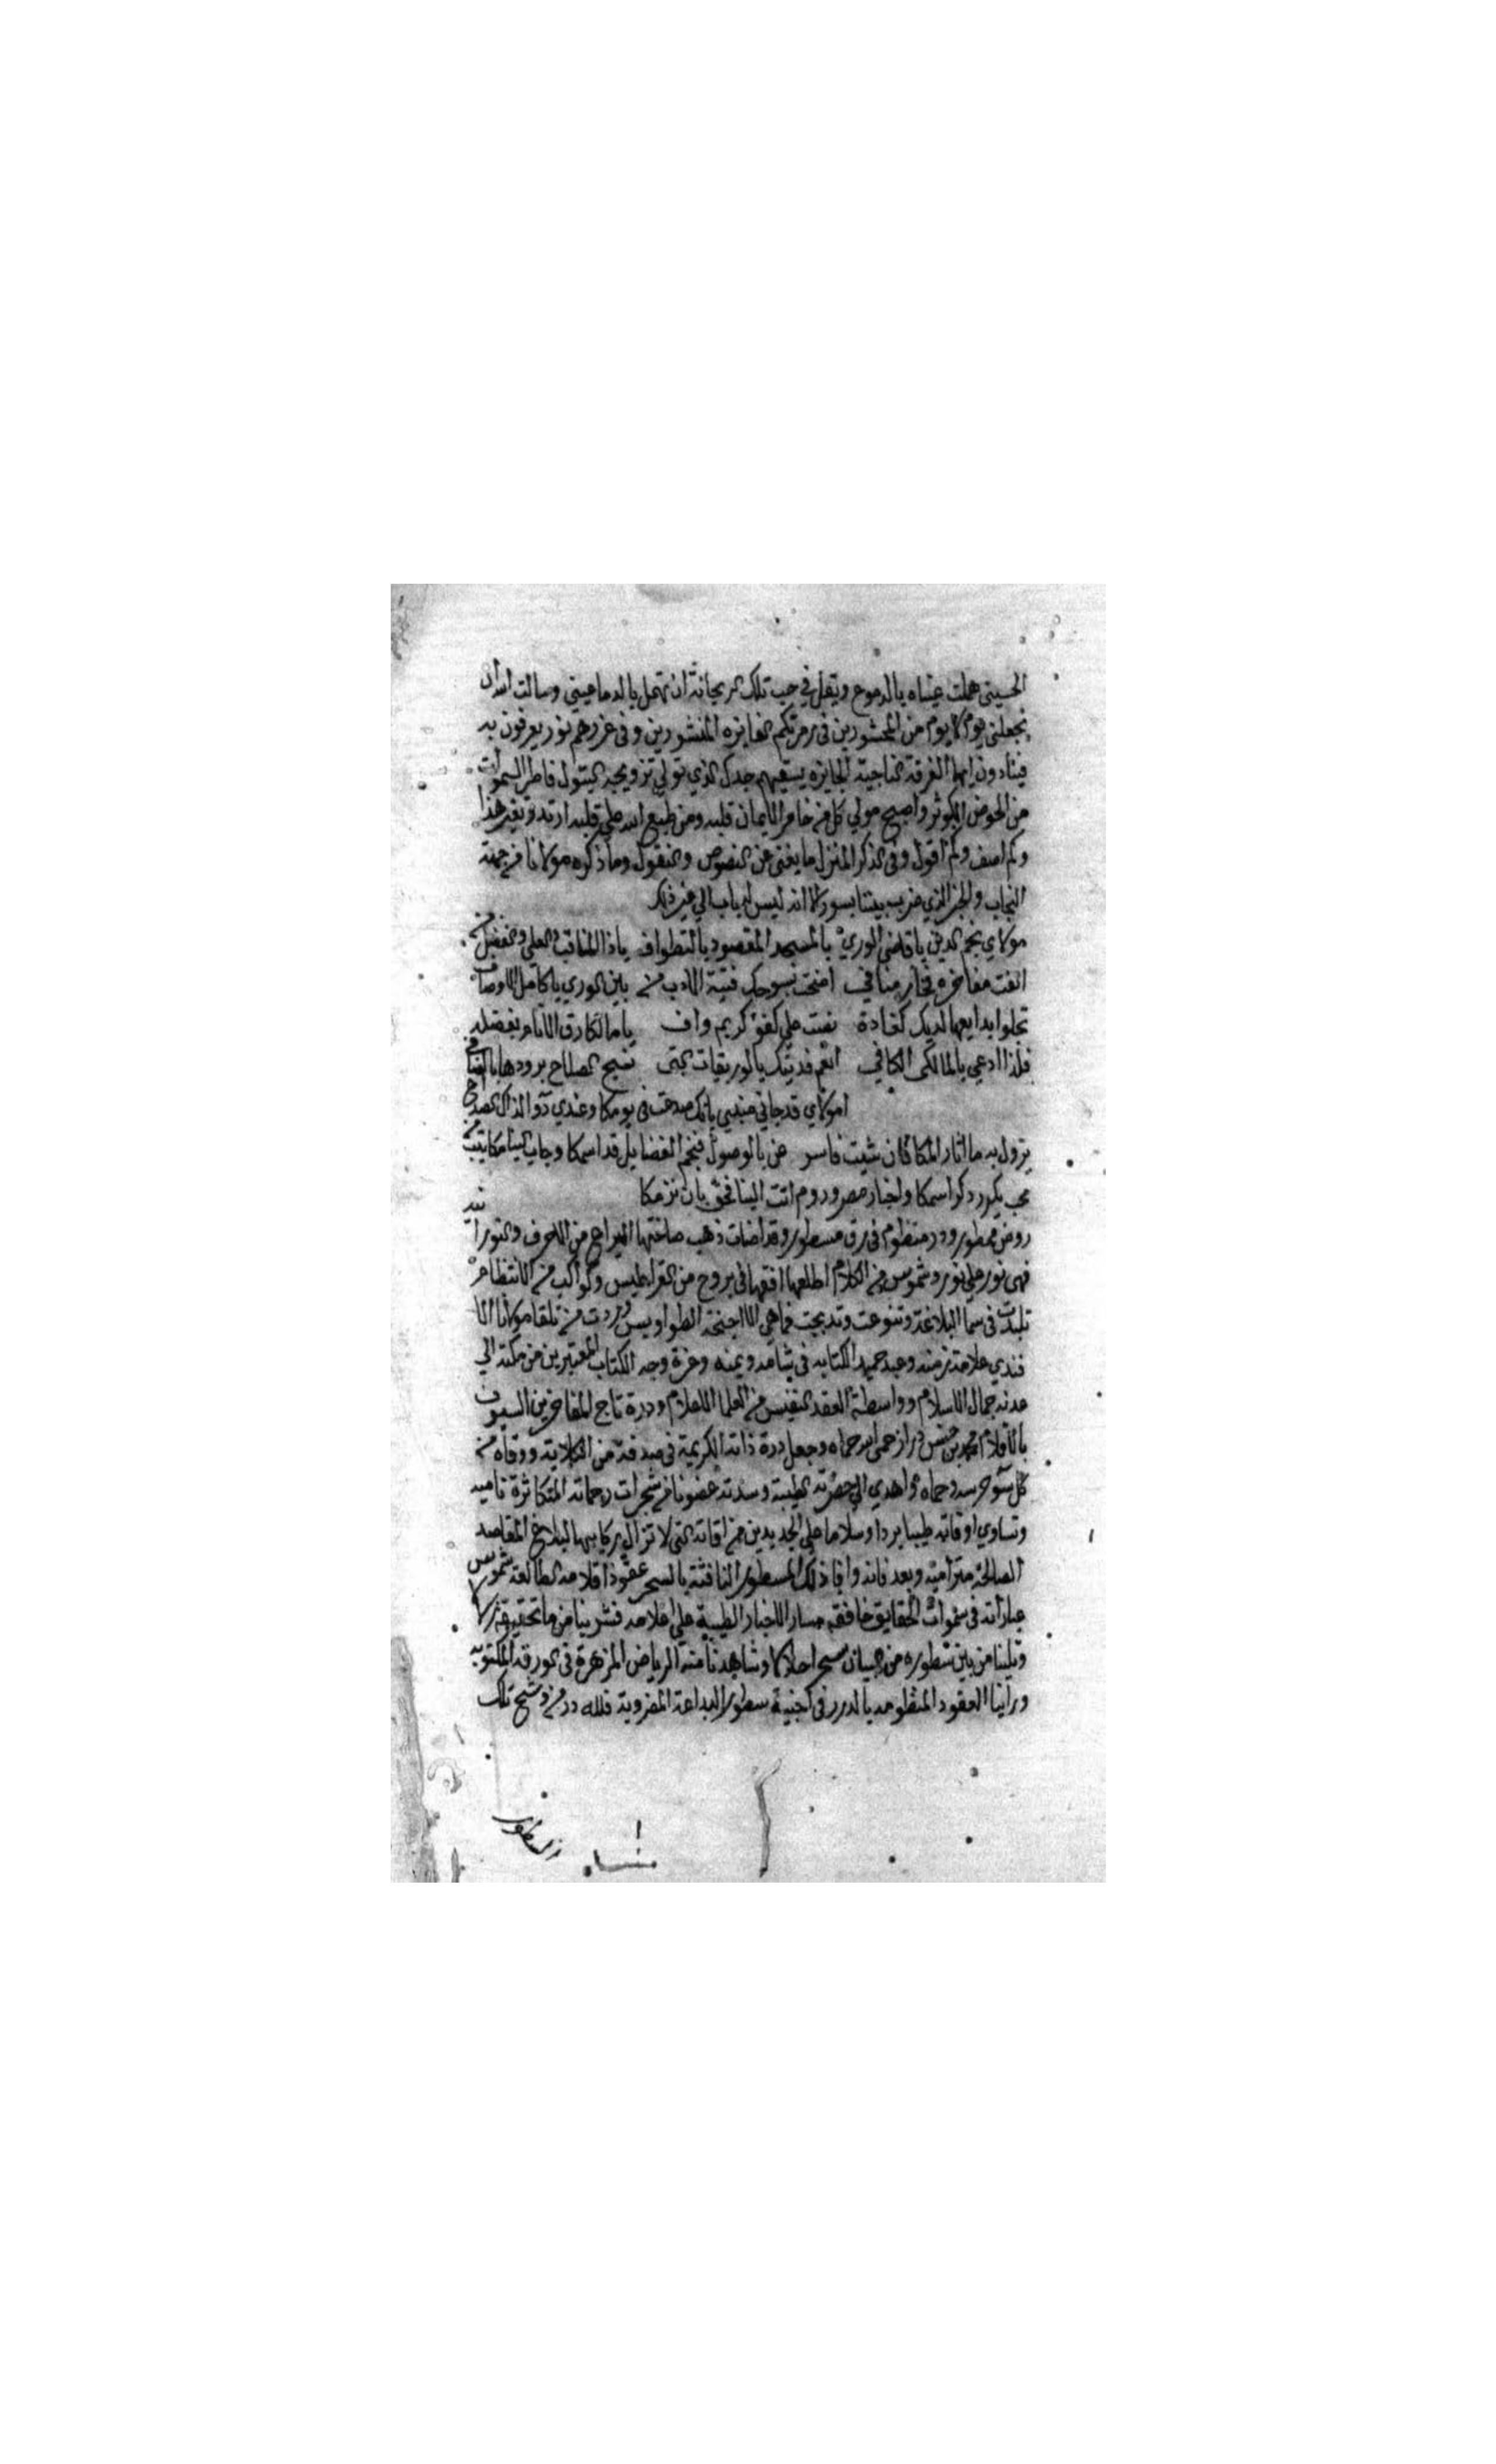 الحسيني هملت عيناه بالدموع ويقل في حب تلك الريحانة ان تهمل بالدما عيني وسالت الله ان
يجعلني يوم لا يوم من المحشورين في زمرتكم الفايزه المنشورين وفي غررهم نور يعرفون به
فينادون ايها الفرقة الناجية الجايزه يسقيهم جدك الذي تولي تزويجه البتول فاطر السموات
من الحوض الكوثر واصبح مولي كل من خامر الايمان قلبه ومن طبع الله علي قلبه ارتد وتغير هذا
وكم اصف وكم اقول وفي الذكر المنزل ما يغني عن النصوص والنقول وما ذكره مولانا من جهة
النجاب والجز الذي ضرب بيننا بسور الا انه ليس له باب الي غير ذلك
مولاي نجم الدين يا قاضي الوري بالمسجد المقصود بالتطواف ياذا المناقب والعلي والفضل من
انفت مفاخره فخار مناف اضحت بسوحك فتية الادب من بين الوري يا كامل الاوصاف
تجلوا بدايعها لديك كغادة نفت علي كفؤ كريم واف يا مالكا رق الانام بفضله
فلذا ادعي بالمالكي الكافي انعم فديتك بالوريقات التي نسج الصلاح برودها بالقاف
امولاي قد جاني منبي بانك صدعت في يومكا وعندي دوا لذاك الصداع
يزول به ما اثار المكا فان شيت فاسر عن بالوصول فنجم الفضايل قد اسمكا وجات الينا مكاتيب من
محب يكرر ذكر اسمكا واخبار مصر وروم اتت الينا فحق بان نزمكا
روض ممطور ودر منظوم في رق مسطور وقراضات ذهب صاغتها اليراع من الاحرف والنورا نيه
فهي نور علي نور وشموس من الكلام اطلعها افقها في بروج من القراطيس وكواكب من الانتظام
تلبدت في سما البلاغة وتنوعت وتدبجت فما هي الا اجنحة الطواويس وردت من تلقا مولانا الا
فندي علامة زمنه وعبد حميد الكتابه في شامه ويمنه وغرة وجه الكتاب المعتبرين من مكته الي
عدنه جمال الاسلام وواسطة العقد النفيس من العلما الاعلام ودرة تاج المفاخرين السيوف
بالاقلام محمد بن حسن دراز حمي الله حماه وجعل درة ذاته الكريمة في صدفة من الكلاية ووقاه من
كل سوء حرسه وحماه واهدي الي حضرته الطيبة وسدته غضونا من شجرات رحماته المتكاثرة ناميه
وتساوي اوقاته طيبا بردا وسلاما علي الجديدين من اقاته التي لا تزال ركايبها لبلاغ المقاصد
الصالحة متراميه وبعد فانه وافا ذلك المسطور النافثة بالسحر عقود اقلامه الطالعة شموس
عباراته في سموات الحقايق خافقه مسار الاخبار الطيبة علي اعلامه فشربنا من ما تحقيقه زلالا
وتلينا من بين سطوره من البيان سحرا حلالا وشاهدنا منه الرياض المزهرة في الورقة المكتوبه
وراينا العقود المنظومه بالدرر في اجنية سطور البداعة المضروبة فلله در من وشح تلك
السطور